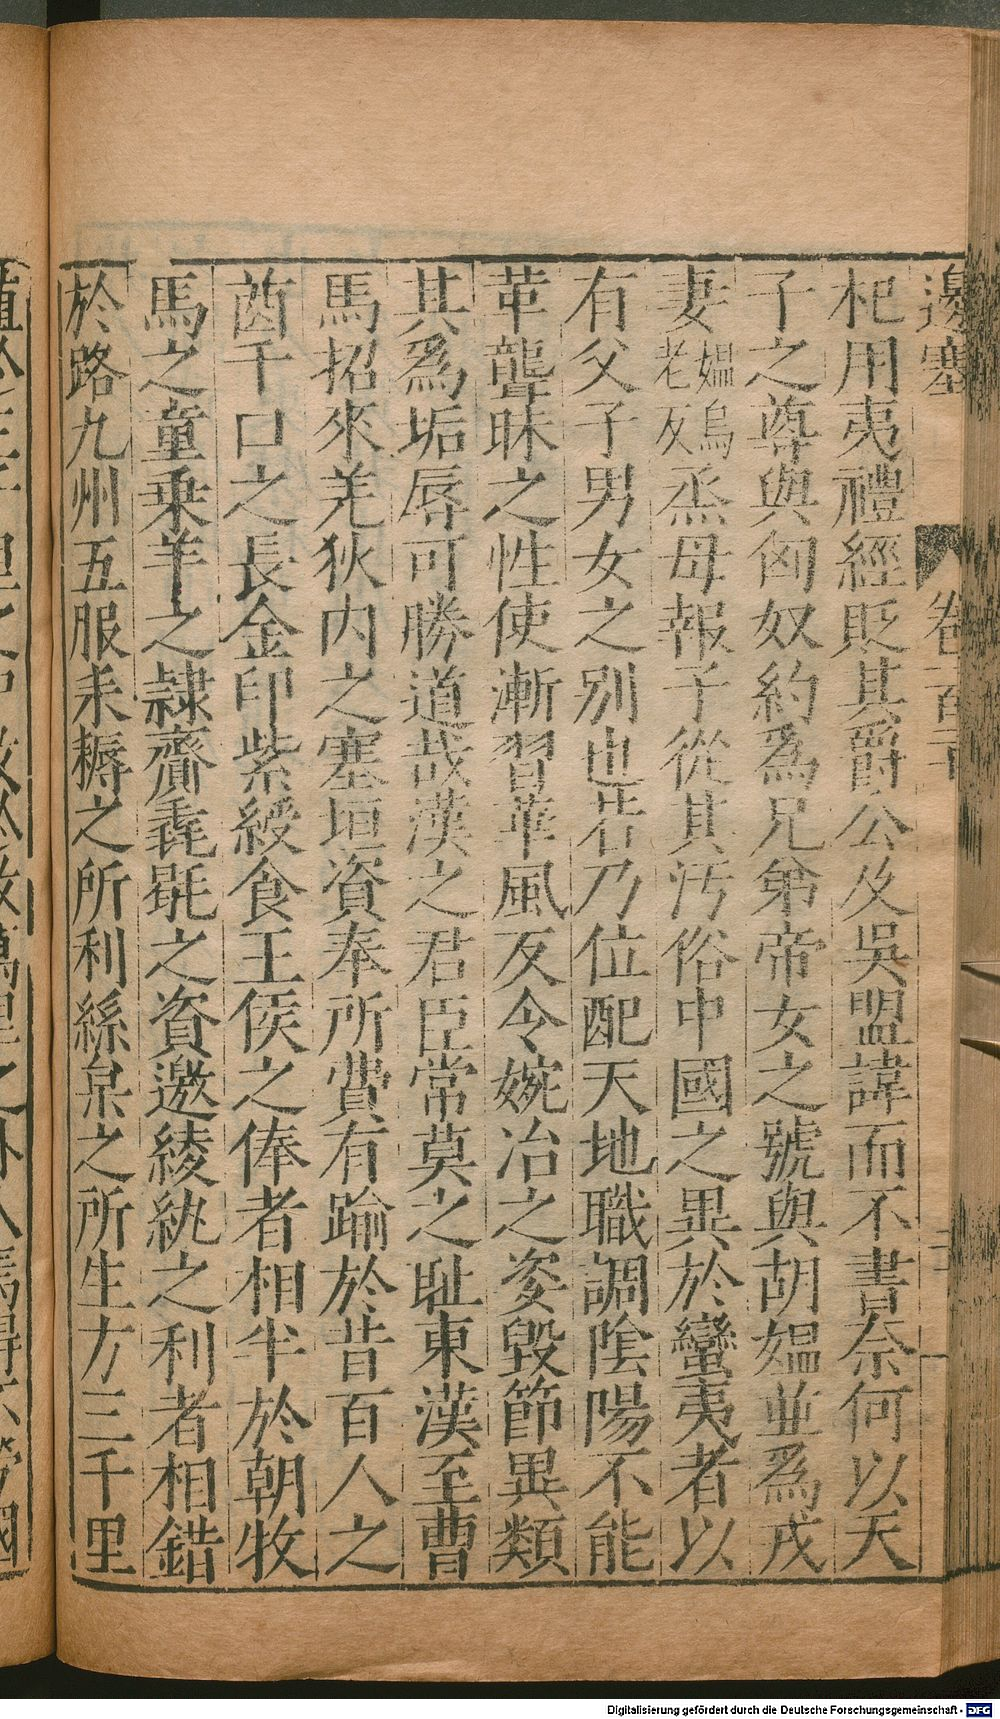 邊塞 卷一百三十
杞用夷禮經貶其爵公及吳盟諱而不書奈何以天
子之尊與匈奴約爲兄弟帝女之號與胡媼並爲戎
妻媼烏老反烝母報子從其汚俗中國之異於蠻夷者以
有父子男女之别也若乃位配天地職調陰陽不能
革聾昧之性使漸習華風反令婉冶之姿毀節異類
其爲垢辱可勝道哉漢之君臣常莫之耻東漢至曹
馬招來羌狄内之塞垣資奉所費有踰於昔百人之
酋千口之長金印紫綬食王侯之俸者相半於朝牧
馬之童乗羊之隷齎毳毼之資邀綾絁之利者相錯
於路九州五服耒耨之所利絲枲之所生方三千里
Digitalisierung gefördert durch die Deutsche Forschungsgemeinschaft - DFG